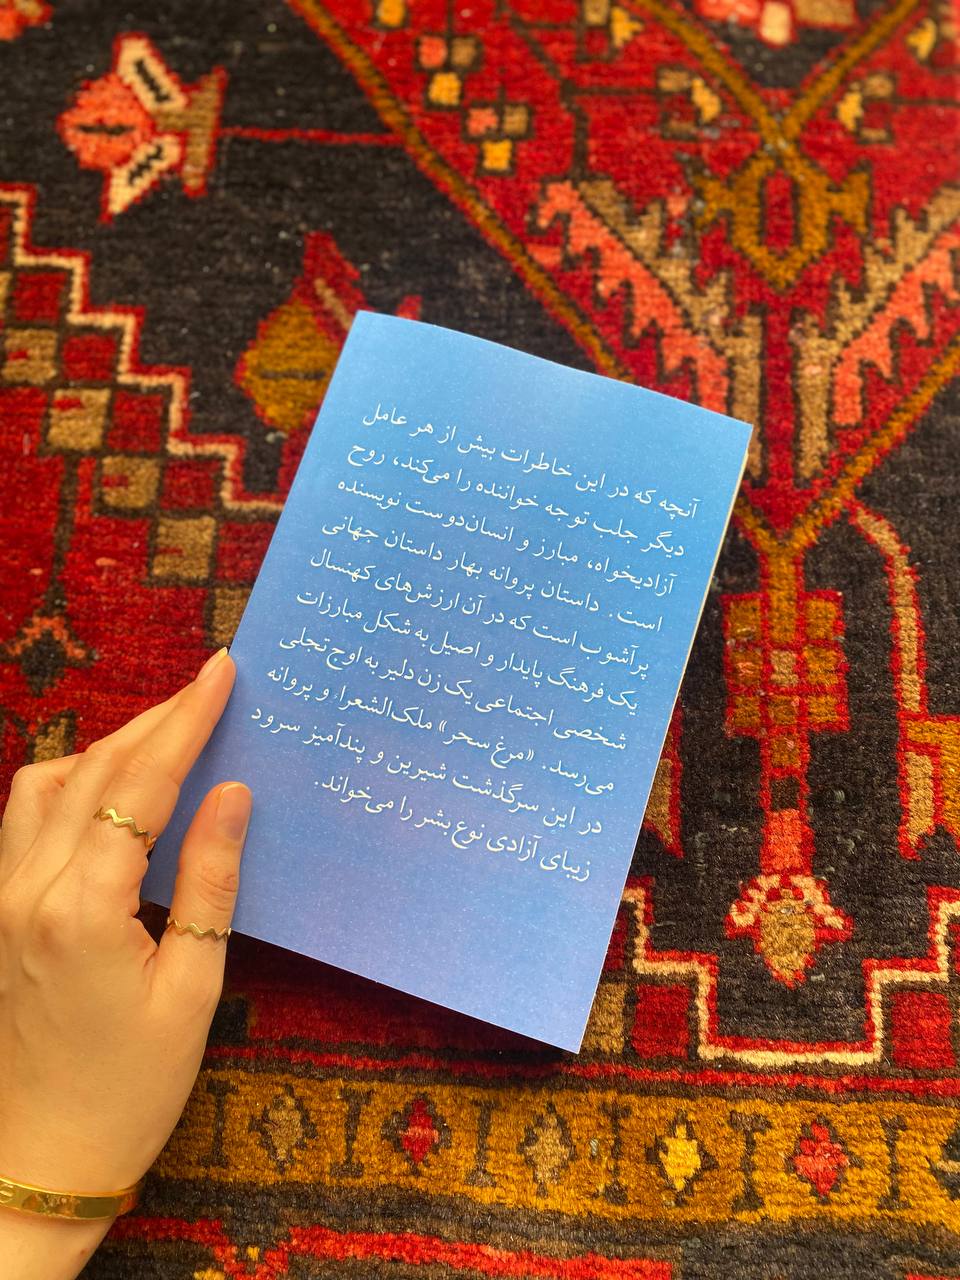 آنچه که در این خاطرات بیش از هر عامل
دیگر جلب توجه خواننده را می‌کند، روح
آزادیخواه، مبارز و انسان‌دوست نویسنده
است. داستان پروانه بهار داستان جهانی
پرآشوب است که در آن ارزش‌های کهنسال
یک فرهنگ پایدار و اصیل به شکل مبارزات
شخصی اجتماعی یک زن دلیر به اوج تجلی
می‌رسد. «مرغ سحر» ملک‌الشعراء و پروانه
در این سرگذشت شیرین و پندآمیز سرود
زیبای آزادی نوع بشر را می‌خواند.